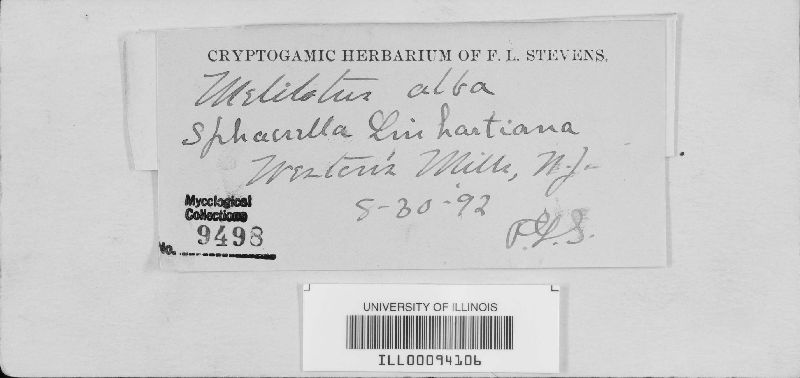 CRYPTOGAMIC HERBARIUM OF F. L. STEVENS.
Melilotus alba
Sphaerella Linhartiana
Weston's Mills, N.J.
8-30-92
F.L.S.
Mycological
Collections
No. 9498
UNIVERSITY OF ILLINOIS
ILL00094106